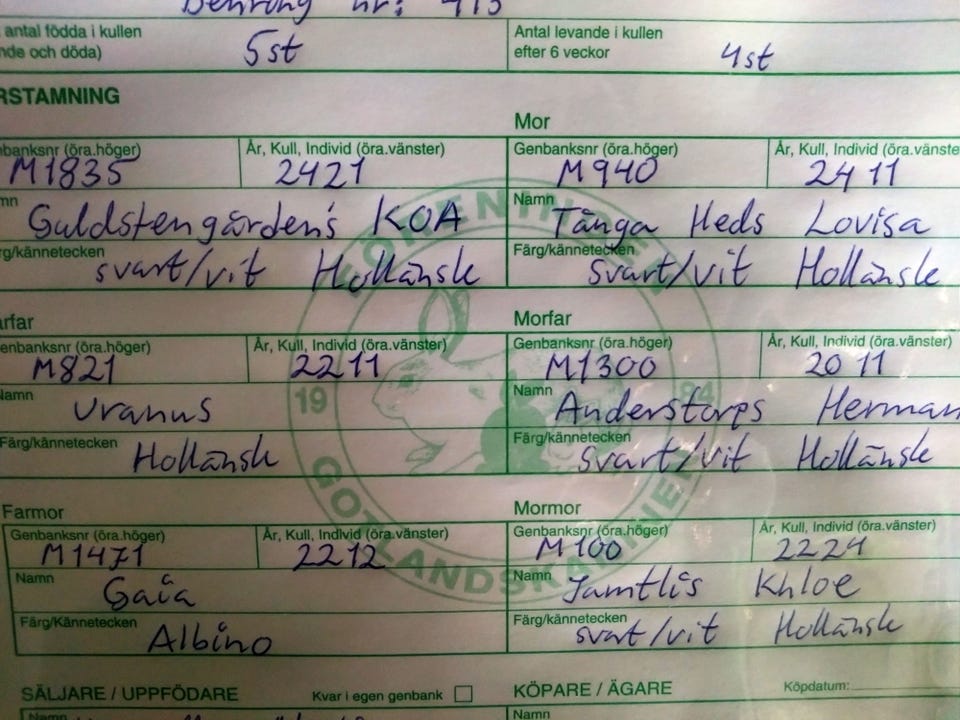 nr: 413
antal födda i kullen
Antal levande i kullen
nde och döda)
5st
efter 6 veckor
4st
RSTAMNING
Mor
nbanksnr (öra.höger)
År, Kull, Individ (öra.vänster)
Genbanksnr (öra.höger)
År, Kull, Individ (öra.vänste
M1835
2421
M940
2411
mn
Guldstengårdens KOA
Namn
Tånga Heds Lovisa
rg/kännetecken
Färg/kännetecken
svart/vit Hollänsk
svart/vit Hollänsk
FÖRENINGEN GOTLANDSKANINEN
1994
rfar
Morfar
enbanksnr (öra.höger)
År, Kull, Individ (öra.vänster)
Genbanksnr (öra.höger)
År, Kull, Individ (öra.vänster)
M821
2211
M1300
2011
Namn
Uranus
Namn
Anderstorps Herman
Färg/kännetecken
Hollänsk
Färg/kännetecken
svart/vit Hollänsk
Farmor
Mormor
Genbanksnr (öra.höger)
År, Kull, Individ (öra.vänster)
Genbanksnr (öra.höger)
År, Kull, Individ (öra.vänster)
M1471
2212
M100
2224
Namn
Gaia
Namn
Jamtlis Khloe
Färg/Kännetecken
Albino
Färg/kännetecken
svart/vit Hollänsk
SÄLJARE / UPPFÖDARE
Kvar i egen genbank
KÖPARE / ÄGARE
Köpdatum:
Namn
Namn